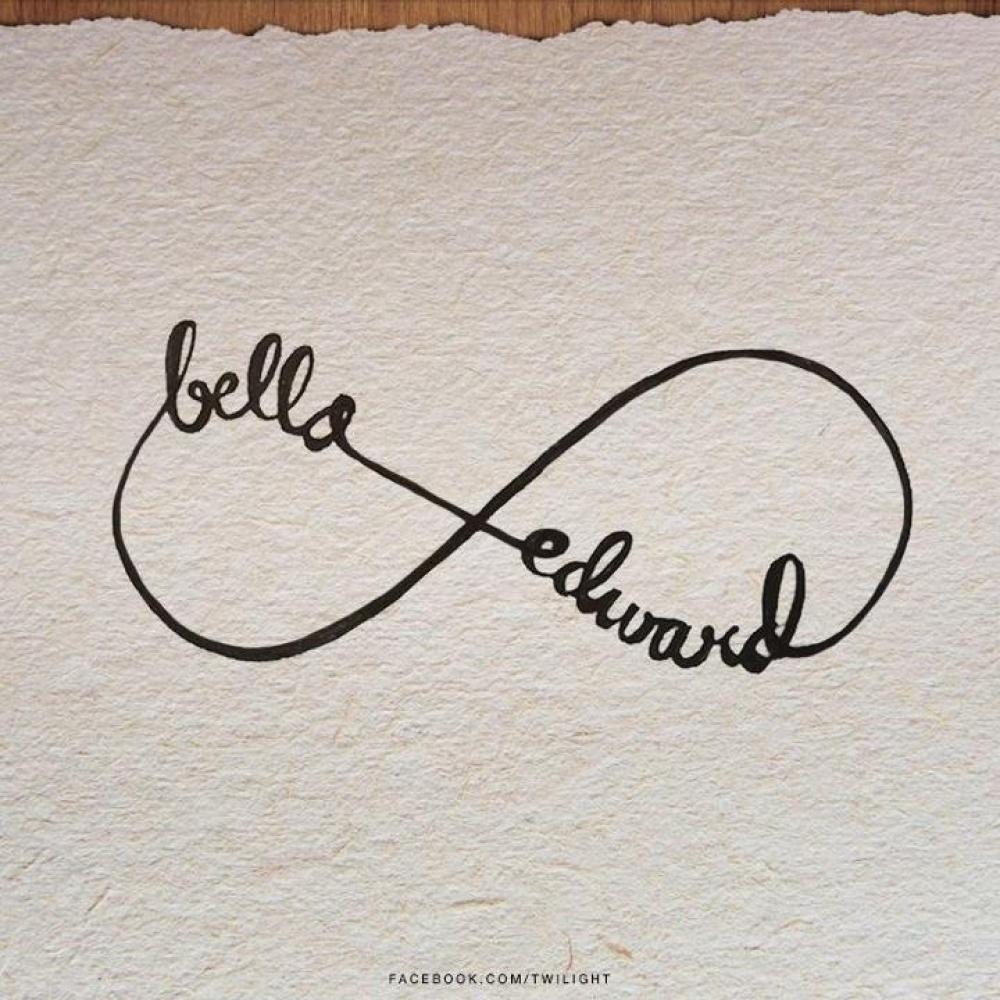 bella
edward
FACEBOOK.COM/TWILIGHT